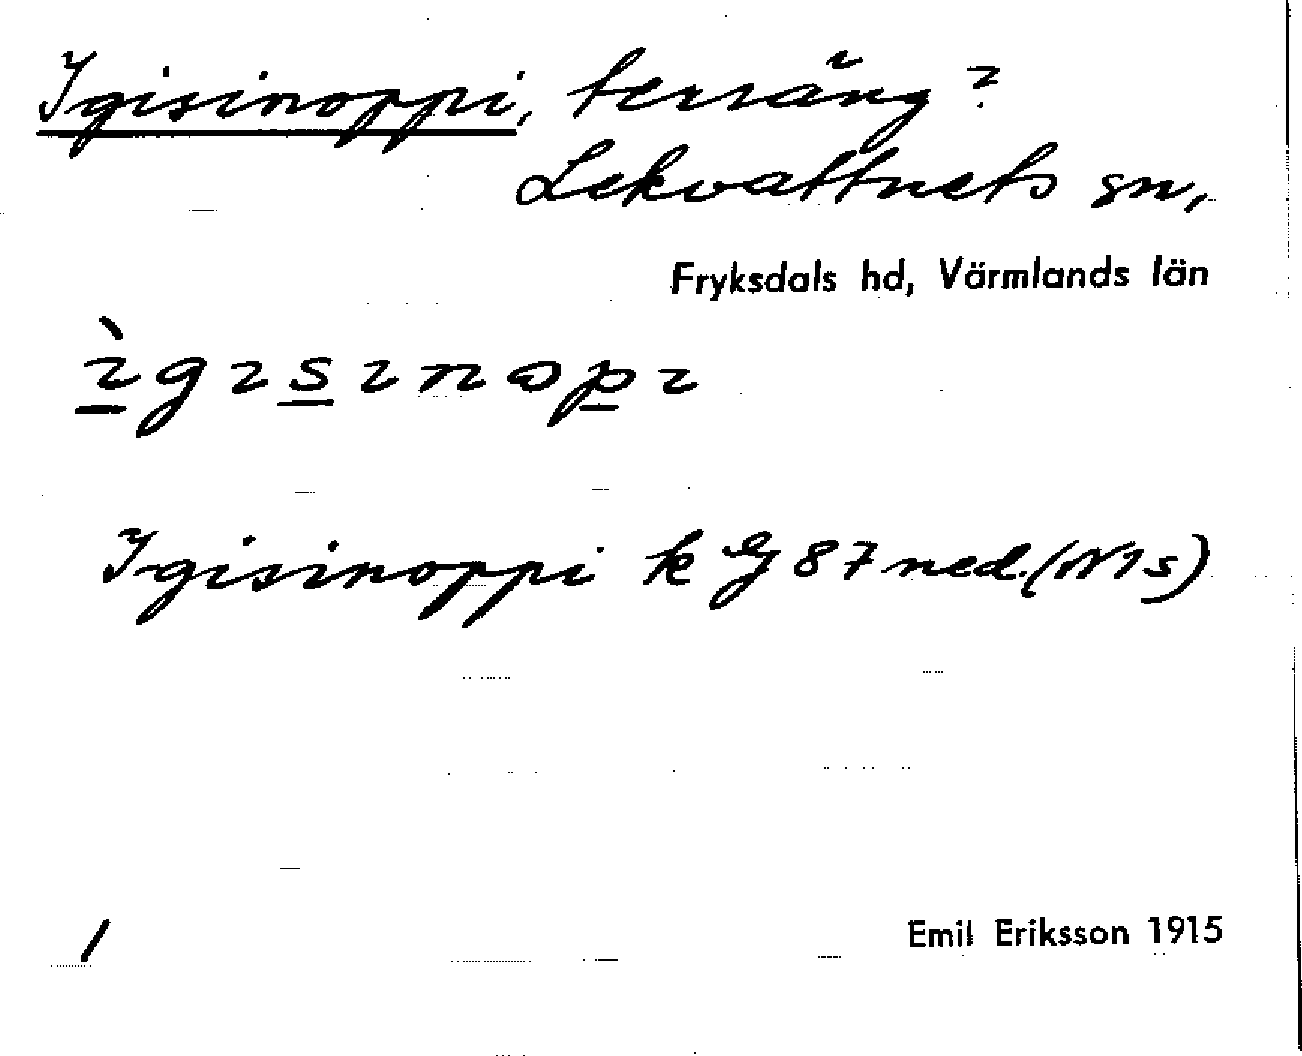 Igisinoppi, terräng?
Lekvattnets sn,
Fryksdals hd, Värmlands län
ìgısınopı
Igisinoppi k G 87 ned. (N1s)
/
Emil Eriksson 1915